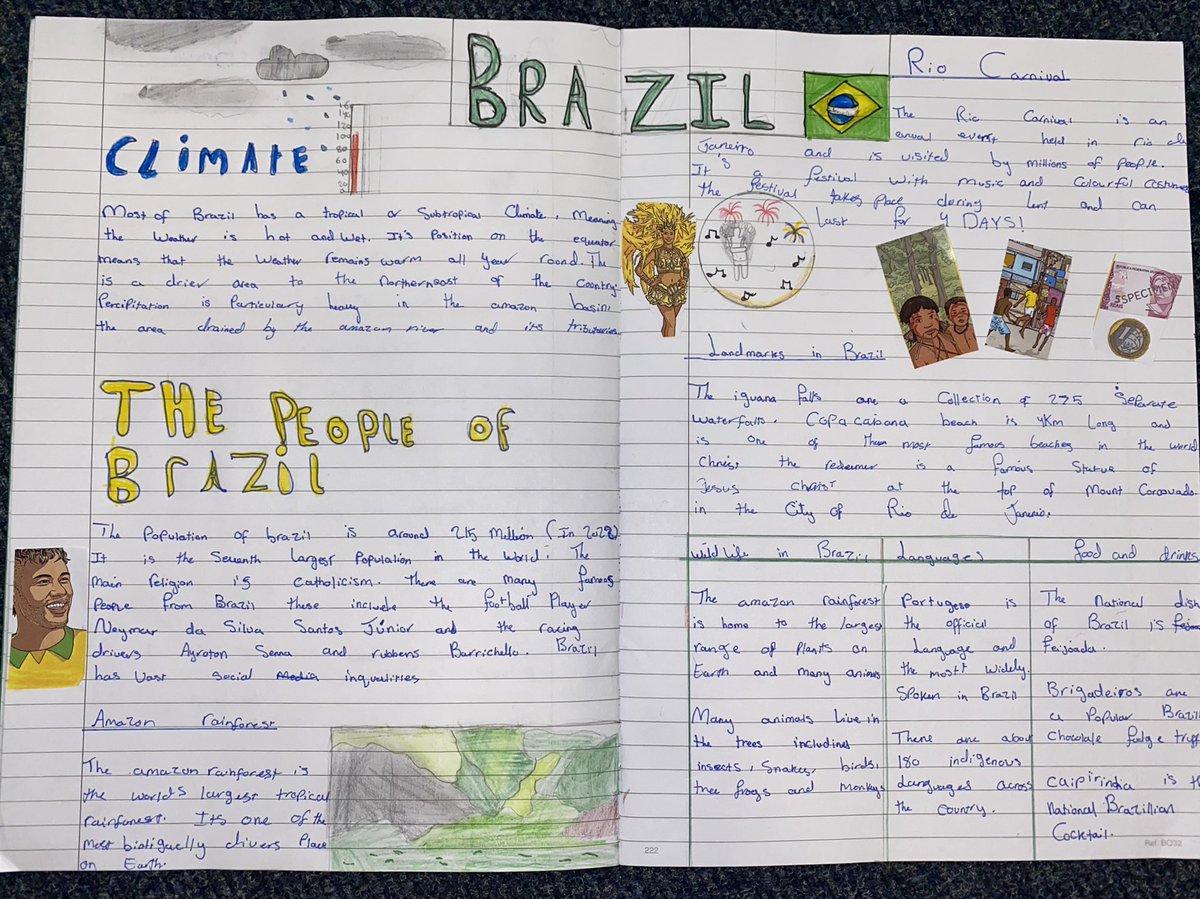 BRAZIL
CLiMATE
16
140
120
100
80
60
40
20
0
Most of Brazil has a tropical or Subtropical Climate, Meaning
the Weather is hot and wet. It's Position on the equator
means that the Weather remains warm all year round. The
is a drier area to the Northeast of the Country.
Percipitation is Particulary heavy in the amazon basin,
the area drained by the amazon river and its tributaries.
THE PEOPLE OF
BRAZiL
The Population of brazil is around 215 Million (In 2022)
It is the Seventh largest Population in the World. The
main religion is Catholicism. There are many famous
People from Brazil these include the football Player
Neymar da Silva Santos Júnior and the racing
drivers Ayroton Senna and rubbens Barrichello. Brazil
has Vast Social Media inqualities
Amazon rainforest
The amazon rainforest is
the worlds largest tropical
rainforest. Its one of the
Most biotiguelly divers Place
on Earth.
Rio Carnival
The Rio Carnival is an
anual event held in rio de
Janeiro and is visited by millions of people.
It's a festival with music and Colourful costumes
the festival takes place dering lent and can
last for 4 DAYS!
SPECIMEN
5
REAIS
1
Landmarks in Brazil
The iguana falls are a Collection of 275 Separate
waterfalls. Copacabana beach is 4Km Long and
is one of them most famous beaches in the world
Chris, the redeemer is a famous Statue of
Jesus christ at the top of Mount Corcovado
in the City of Rio de Janerio.
wild life in Brazil
The amazon rainforest
is home to the largest
range of Plants on
Earth and many anims
Many animals Live in
the trees includines
insects, Snakes, birds,
tree frogs and monkeys
Languages
Portugese is
the official
Language and
the mostt widely.
Spoken in Brazil
There are about
180 indigenous
Languages across
the Country.
food and drinks
The National dish
of Brazil is
feijoada.
Brigadeiros are
a Popular Brazil
Chocolate fudge truff
Caipirindia is th
National Brazillian
Cocktail.
222
Ref: BQ32